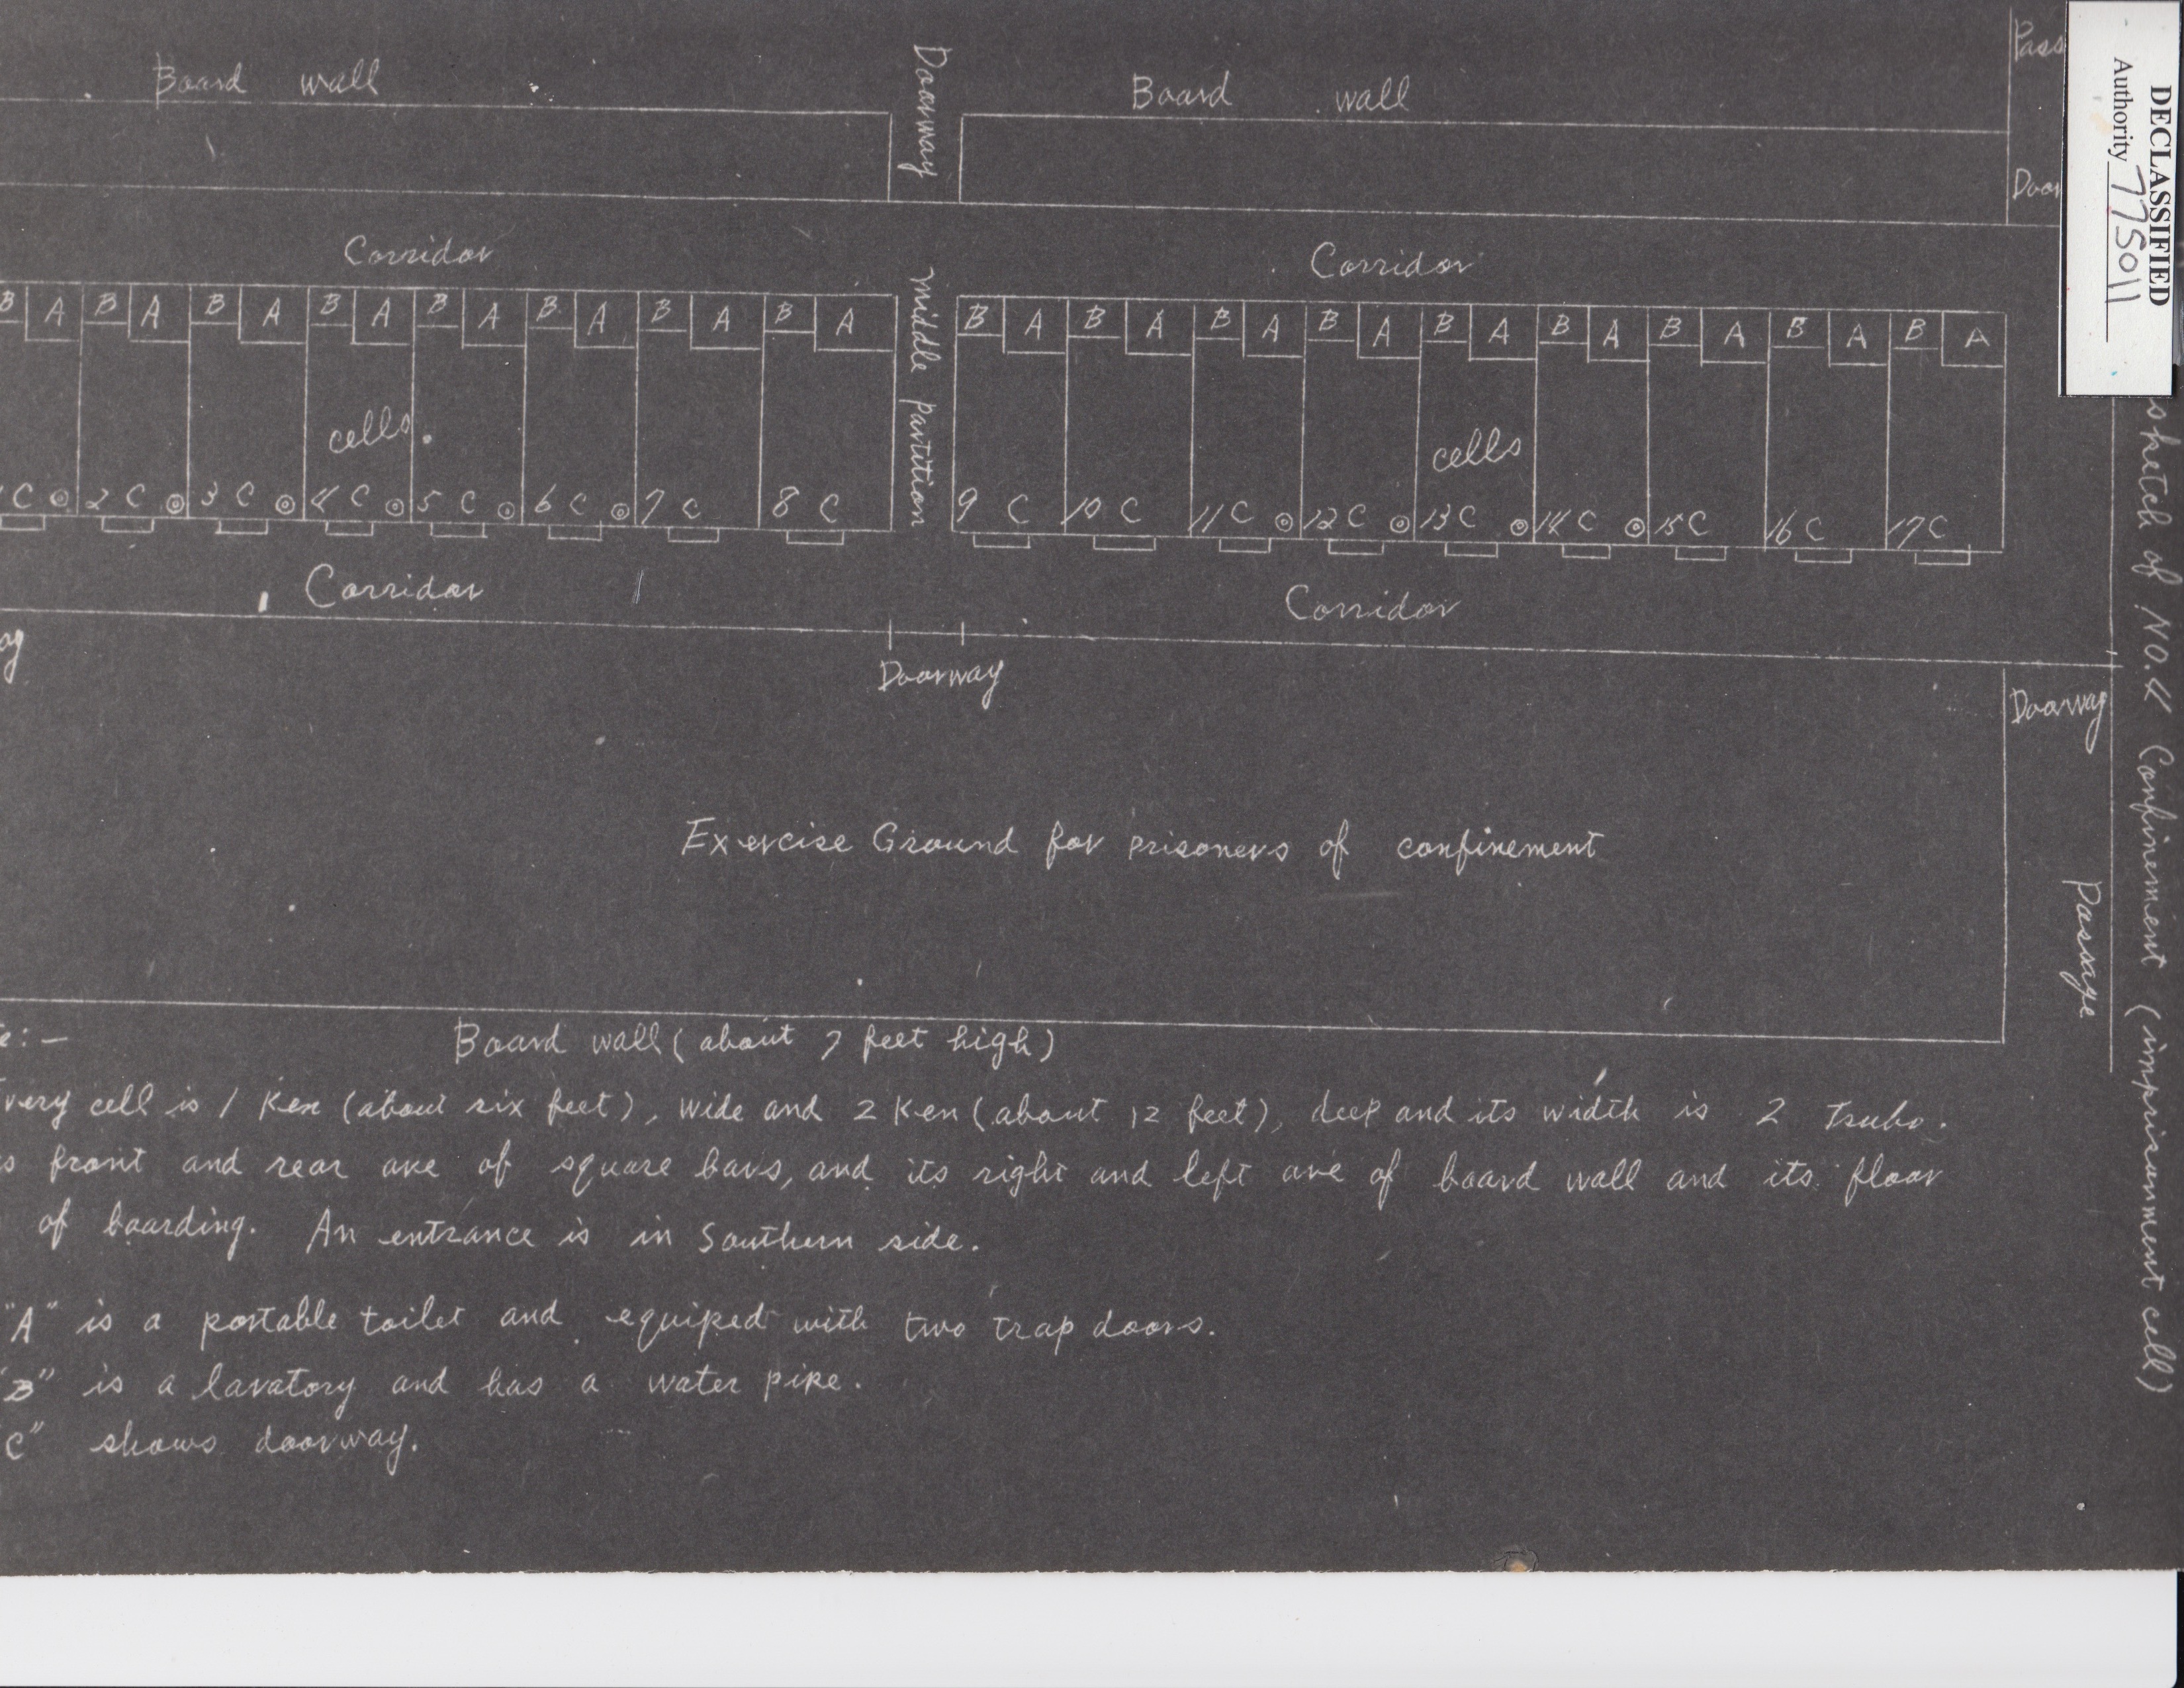 DECLASSIFIED
Authority 775011
sketch of NO.4 Confinement (imprisonment cell)
Board wall
Doorway
Board wall
Corridor
Corridor
B A B A B A B A B A B A B A B A
middle partition
B A B A B A B A B A B A B A B A B A
cells.
cells
C 2 C 3 C 4 C 5 C 6 C 7 C 8 C
9 C 10 C 11 C 12 C 13 C 14 C 15 C 16 C 17 C
Corridor
Corridor
Doorway
Doorway
Exercise Ground for prisoners of confinement
Passage
Board wall (about 7 feet high)
cell is 1 Ken (about six feet), wide and 2 Ken (about 12 feet), deep and its width is 2 Tsubo.
front and rear are of square bars, and its right and left are of board wall and its floor
of boarding. An entrance is in Southern side.
"A" is a portable toilet and equiped with two trap doors.
"B" is a lavatory and has a water pipe.
C" shows doorway.